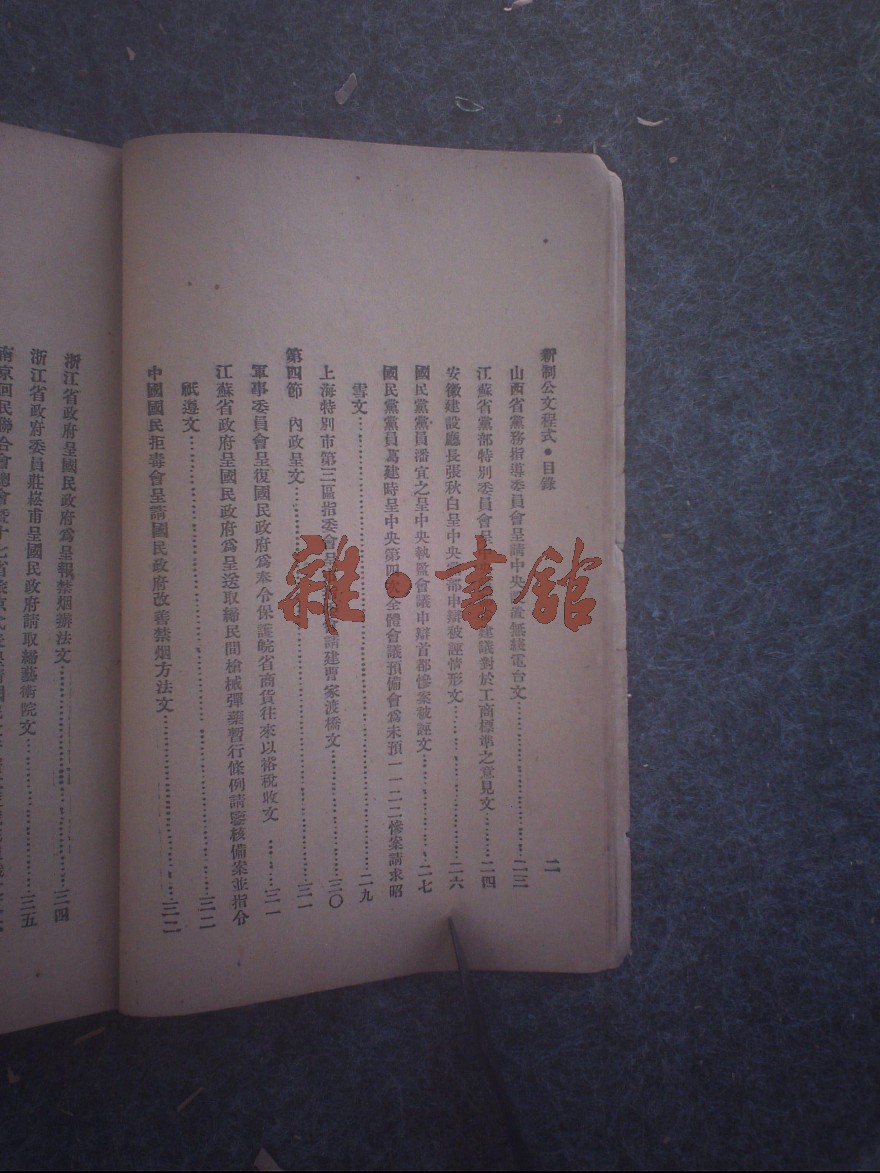 新制公文程式•目錄 二
山西省黨務指導委員會呈請中央設置無綫電台文 二三
江蘇省黨部特別委員會呈 建議對於工商標準之意見文 二四
安徽建設廳長張秋白呈中央黨部申辯被誣情形文 二六
國民黨黨員潘宜之呈中央執監會議申辯首都慘案被誣文 二七
國民黨黨員葛建時呈中央第四次全體會議預備會爲未預一一二二慘案請求昭
雪文 二九
上海特別市第三區指委會呈 請建曹家渡橋文 三〇
第四節 內政呈文 三一
軍事委員會呈復國民政府爲奉令保護皖省商貨往來以裕稅收文 三一
江蘇省政府呈國民政府爲呈送取締民間槍械彈藥暫行條例請鑒核備案並指令
祇遵文 三二
中國國民拒毒會呈請國民政府改善禁烟方法文 三二
浙江省政府呈國民政府爲呈報禁烟辦法文 三四
浙江省政府委員莊崧甫呈國民政府請取締藝術院文 三五
南京回民聯合會總會暨十七省旅京
雜•書館